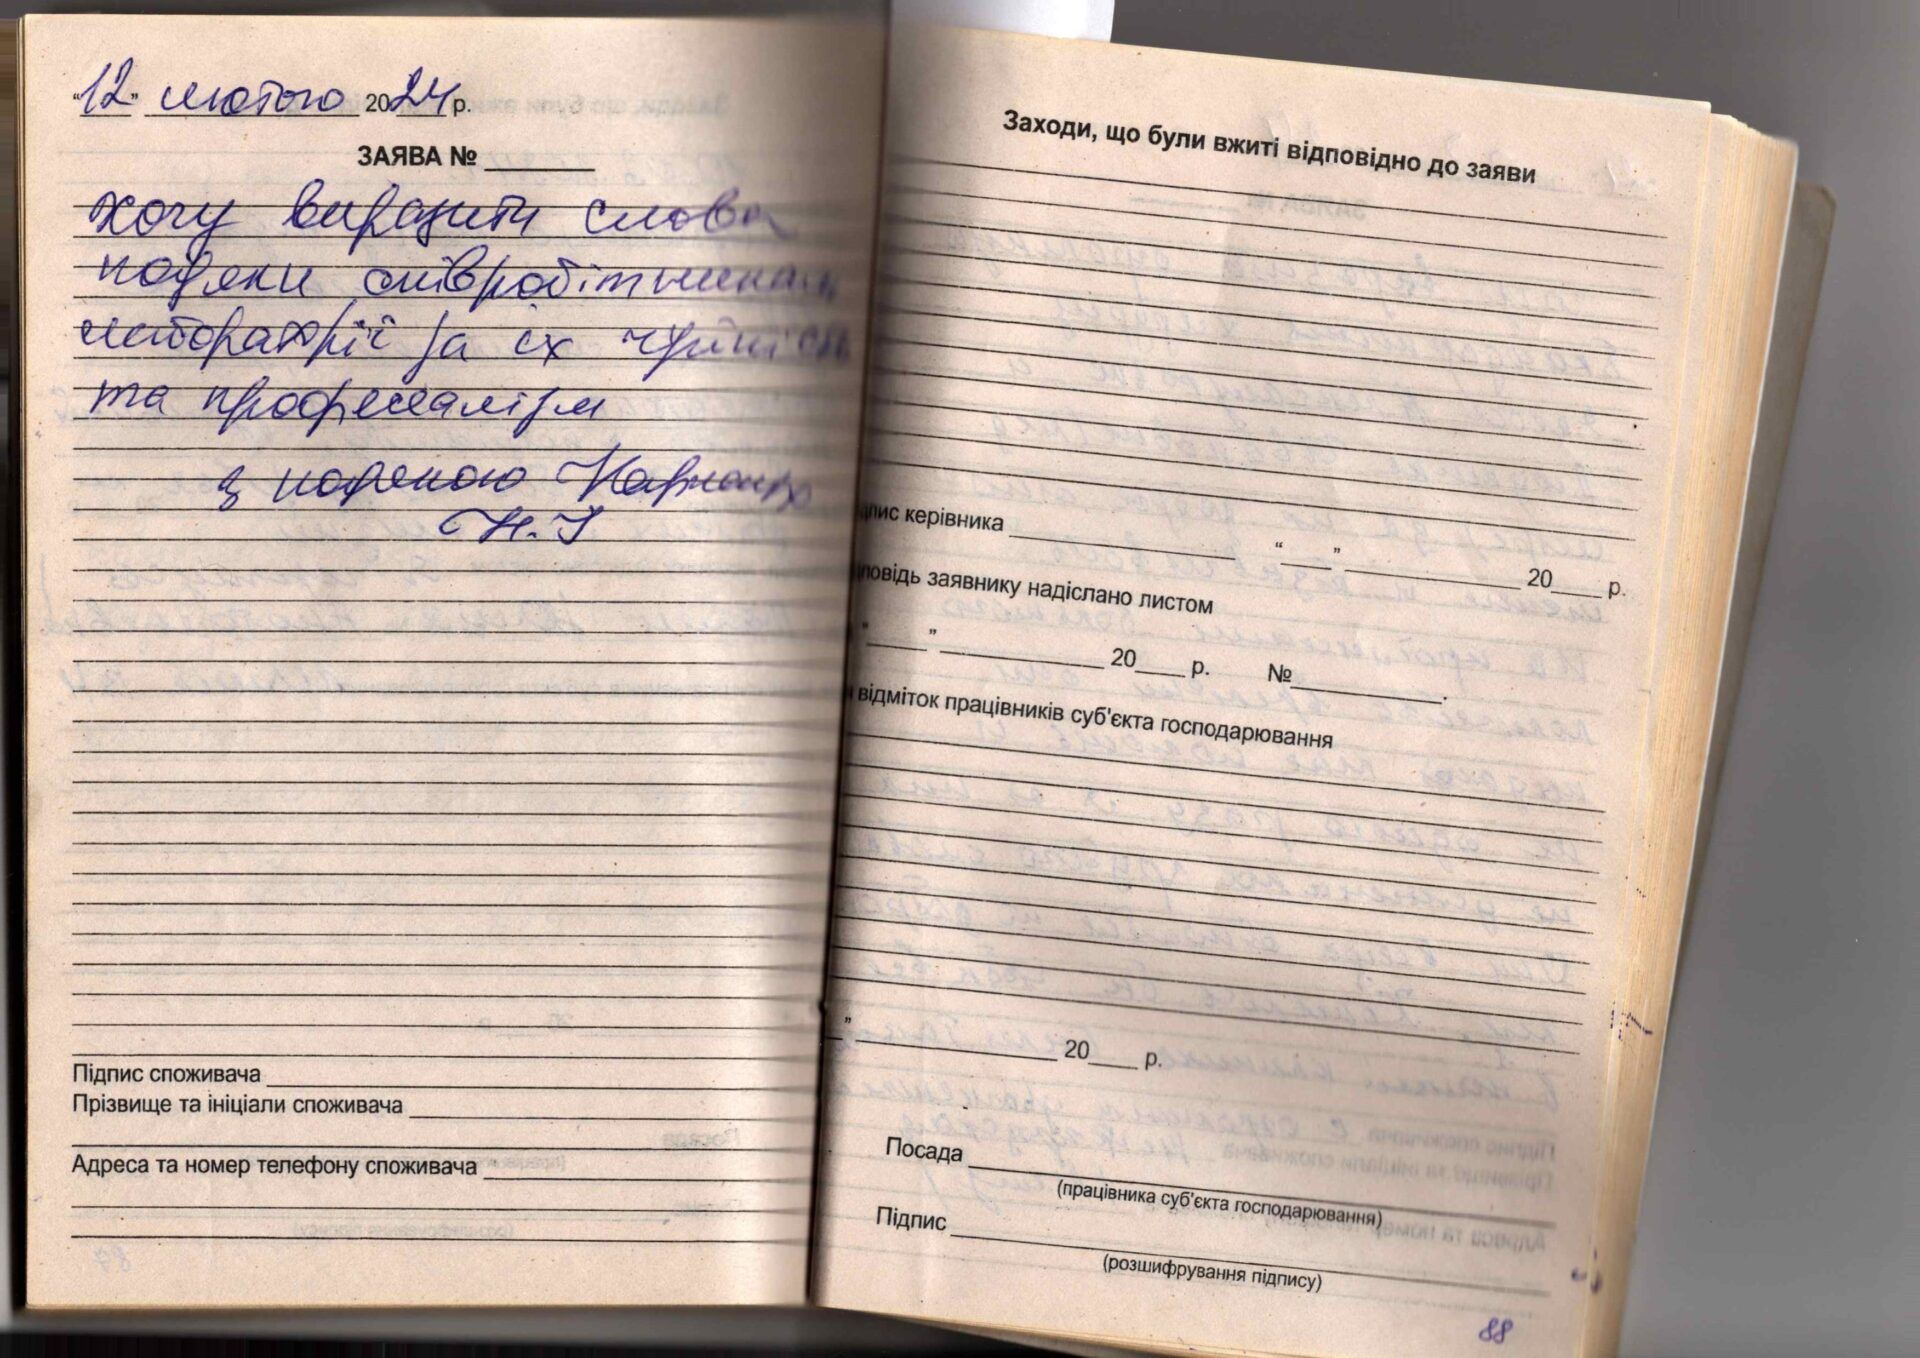 "12" лютого 2024 р.
ЗАЯВА №
хочу виразити слова
подяки співробітникам
лабораторії за їх чуйність
та професіоналізм
з подякою
Н.І
Підпис споживача
Прізвище та ініціали споживача
Адреса та номер телефону споживача
Заходи, що були вжиті відповідно до заяви
керівника " " 20 р.
заявнику надіслано листом
" " 20 р. №
відміток працівників суб'єкта господарювання
" 20 р.
Посада
(працівника суб'єкта господарювання)
Підпис
(розшифрування підпису)
88